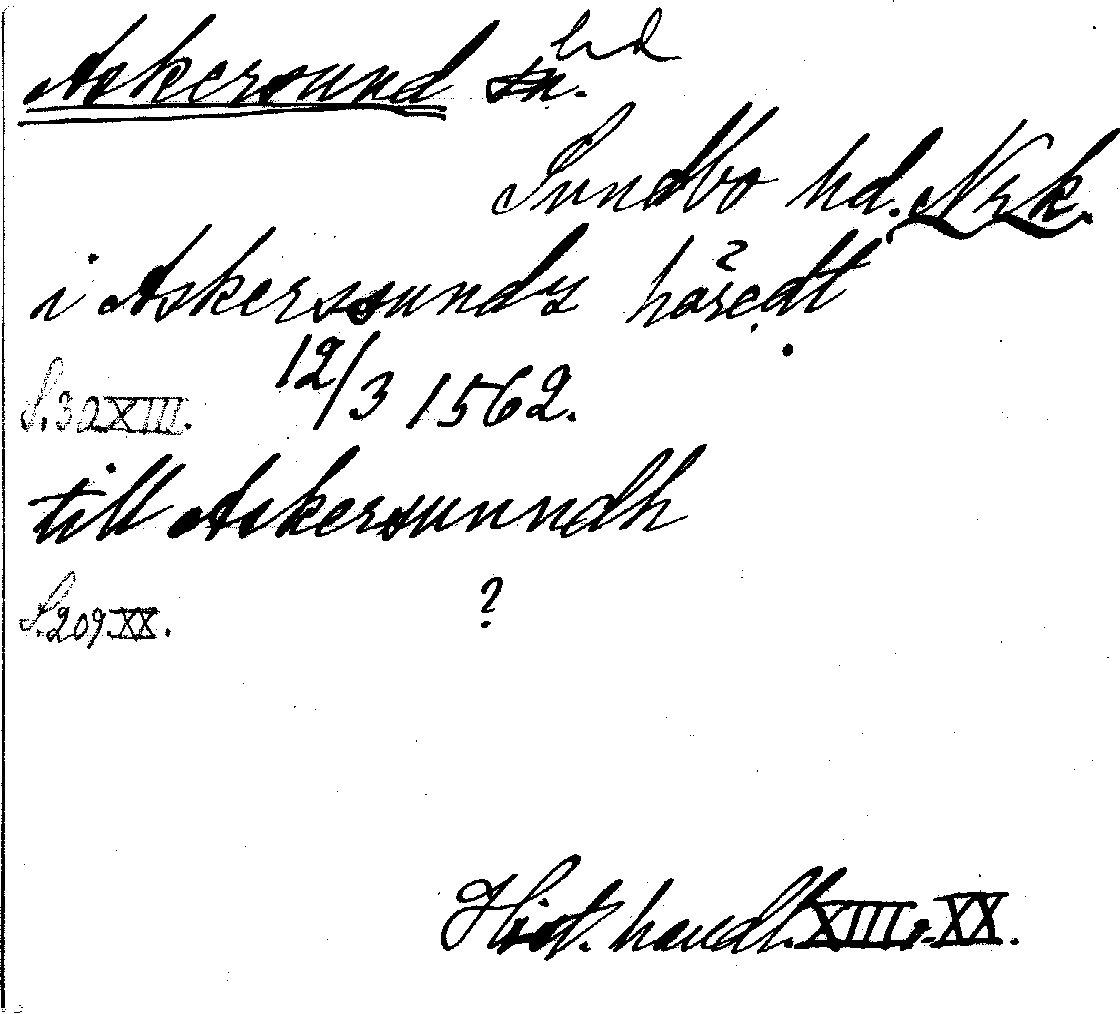 Askersund sn. hd
Sundbo hd. Nrk.
i Askerssunds håredt
S. 32 XIII. 12/3 1562.
till Askersunndh
S. 209 XX. ?
Hist. handl. XIII o. XX.